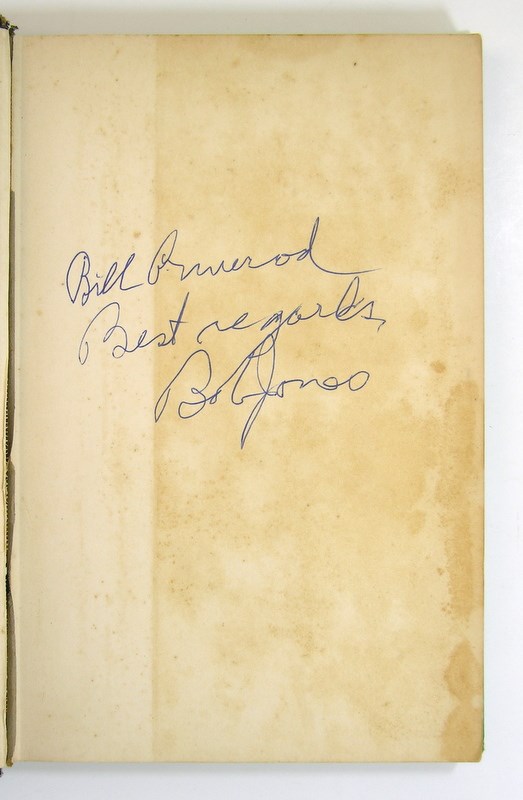 Bill Ormerod
Best regards,
Bob Jones